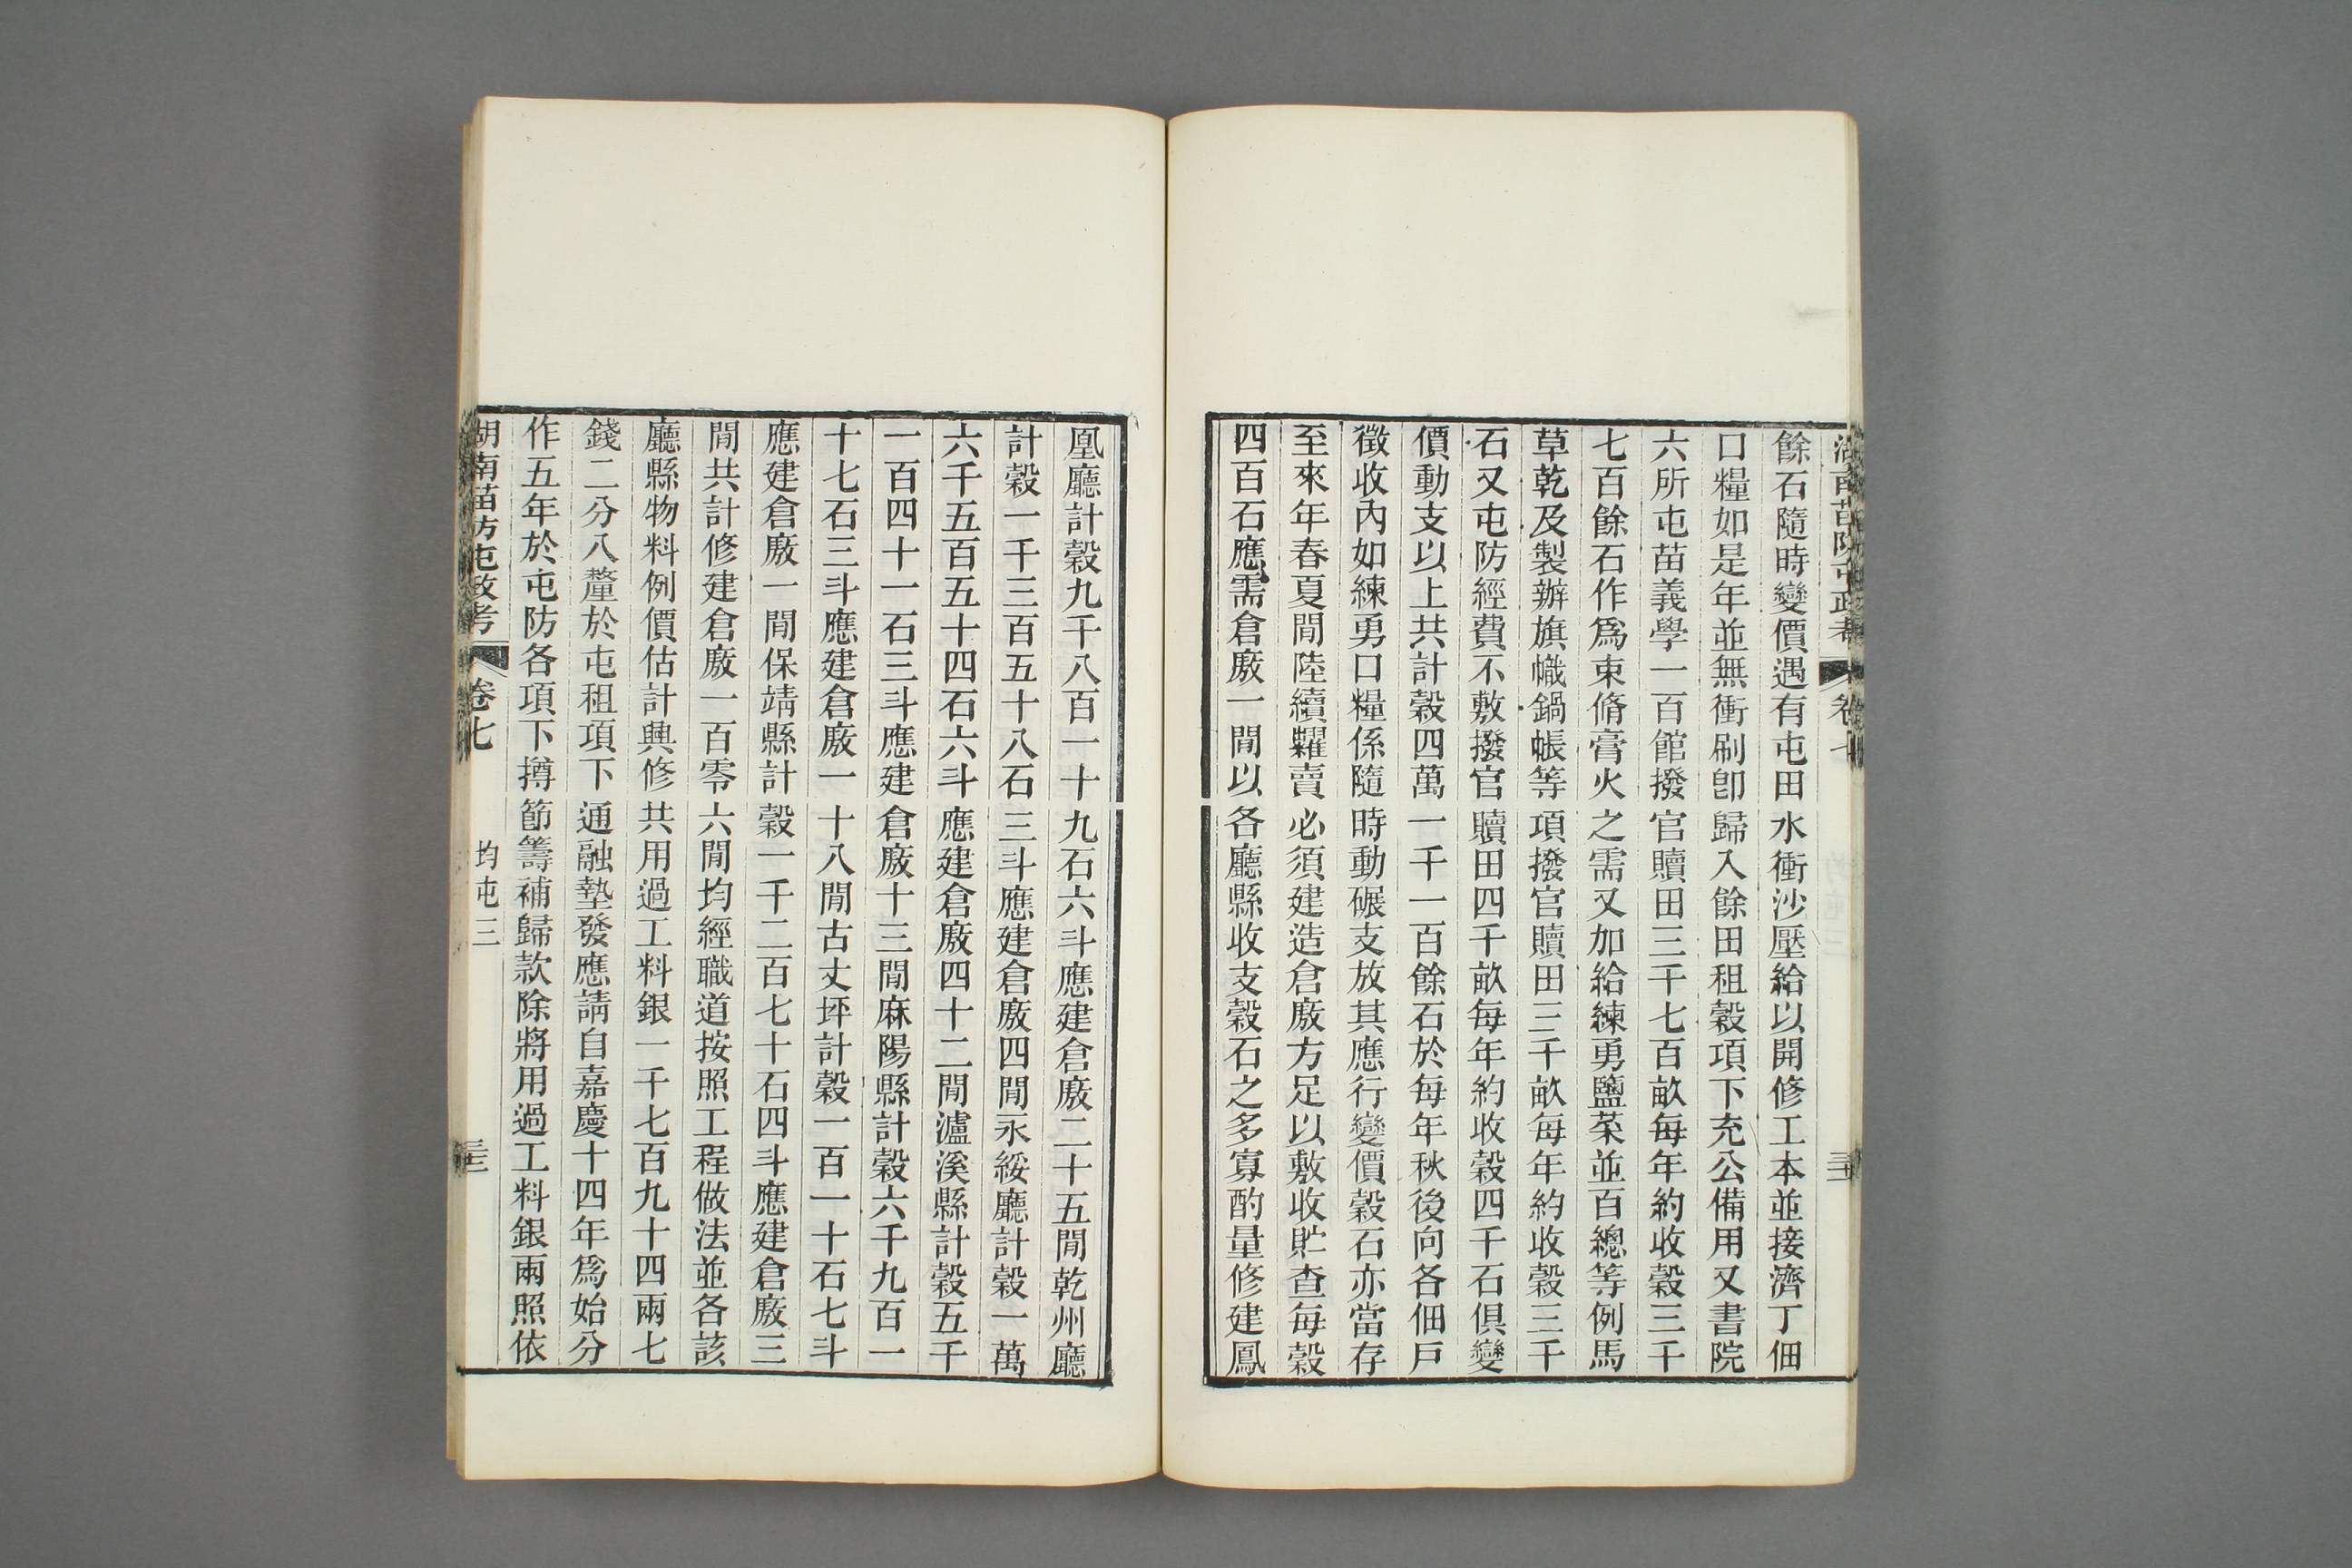 湖南苗防屯政考 卷七
餘石隨時變價遇有屯田水衝沙壓給以開修工本並接濟丁佃
口糧如是年並無衝刷卽歸入餘田租穀項下充公備用又書院
六所屯苗義學一百館撥官贖田三千七百畝每年約收穀三千
七百餘石作爲束脩膏火之需又加給練勇鹽菜並百總等例馬
草乾及製辦旗幟鍋帳等項撥官贖田三千畝每年約收穀三千
石又屯防經費不敷撥官贖田四千畝每年約收穀四千石俱變
價動支以上共計穀四萬一千一百餘石於每年秋後向各佃戶
徵收內如練勇口糧係隨時動碾支放其應行變價穀石亦當存
至來年春夏閒陸續糶賣必須建造倉廒方足以敷收貯查每穀
四百石應需倉廒一閒以各廳縣收支穀石之多寡酌量修建鳳
凰廳計穀九千八百一十九石六斗應建倉廒二十五閒乾州廳
計穀一千三百五十八石三斗應建倉廒四閒永綏廳計穀一萬
六千五百五十四石六斗應建倉廒四十二閒瀘溪縣計穀五千
一百四十一石三斗應建倉廒十三閒麻陽縣計穀六千九百一
十七石三斗應建倉廒一十八閒古丈坪計穀一百一十石七斗
應建倉廒一閒保靖縣計穀一千二百七十石四斗應建倉廒三
閒共計修建倉廒一百零六閒均經職道按照工程做法並各該
廳縣物料例價估計興修共用過工料銀一千七百九十四兩七
錢二分八釐於屯租項下通融墊發應請自嘉慶十四年爲始分
作五年於屯防各項下撙節籌補歸款除將用過工料銀兩照依
湖南苗防屯政考 卷七 均屯三